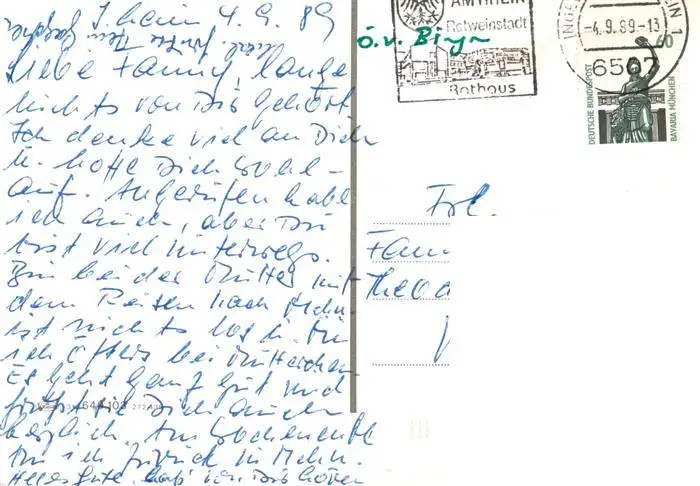 I. heim 4.9.89
Liebe Fanny, lange
nichts von Dir gehört.
Ich denke viel an Dich
u. hoffe Dich wohl-
auf. Angerufen habe
ich auch, aber Du
bist viel unterwegs.
Bin bei der Mutter mit
dem Reisen nach Mchn.
ist nichts los u. bin
ich öfters bei Mutterchen
Es geht ganz gut und
grüßt Dich auch
herzlich. Am Wochenende
bin ich zurück in Mchn.
Alles Gute, laß von Dir hören
640 103
Rotweinstadt
Rathaus
-4.9.89-13
6507
1
60
DEUTSCHE BUNDESPOST
BAVARIA MÜNCHEN
ö.v. Bingen
Frl.
Fann
Theod